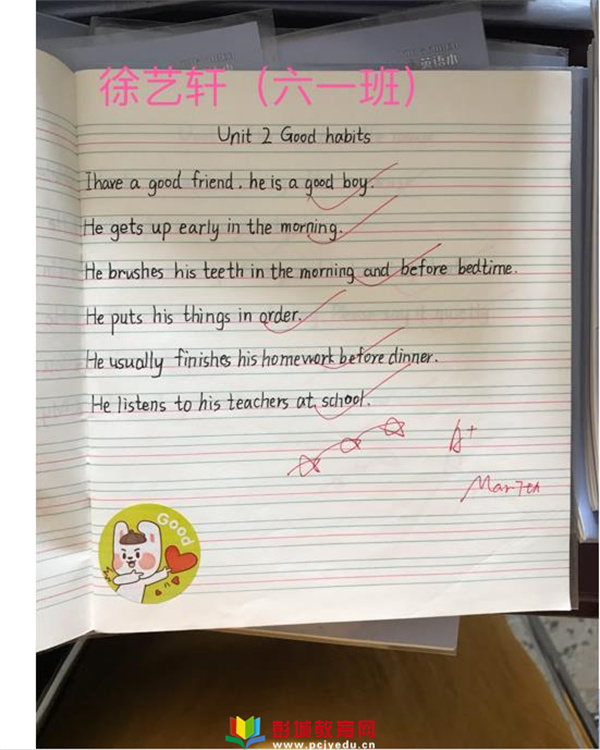 英语本
徐艺轩（六一班）
Unit 2 Good habits
I have a good friend. he is a good boy.
He gets up early in the morning.
He brushes his teeth in the morning and before bedtime.
He puts his things in order.
He usually finishes his homework before dinner.
He listens to his teachers at school.
A+
Good
彭城教育网
www.pcjyedu.cn